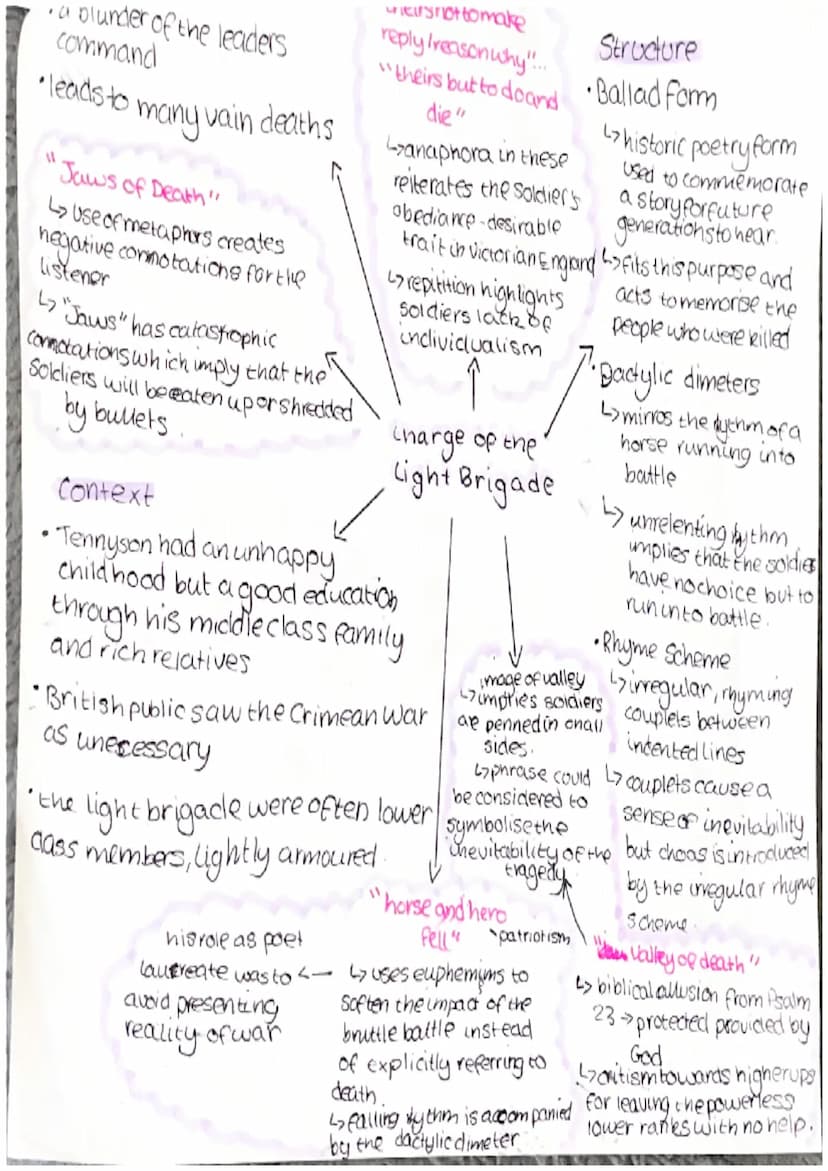 • a blunder of the leaders
command
• leads to many vain deaths
"Jaws of Death"
↳ use of metaphors creates
negative connotations for the
listener
↳ "Jaws" has catastrophic
connotations which imply that the
soldiers will be eaten up or shredded
by bullets.
theirs not to make
reply/reason why"...
"theirs but to do and
die"
↳ anaphora in these
reiterates the soldier's
obediance - desirable
trait in Victorian England
↳ repitition highlights
soldiers lack of
individualism
Structure
• Ballad form
↳ historic poetry form
used to commemorate
a story for future
generations to hear.
↳ fits this purpose and
acts to memorise the
people who were killed
• Dactylic dimeters
↳ mirros the rythm of a
horse running into
battle
↳ unrelenting rythm
implies that the soldies
have no choice but to
run into battle.
• Rhyme Scheme
↳ irregular, rhyming
couplets between
indented lines
↳ couplets cause a
sense of inevitability
but choas is introduced
by the irregular rhyme
scheme.
Charge of the
Light Brigade
Context
• Tennyson had an unhappy
childhood but a good education
through his middle class family
and rich relatives
• British public saw the Crimean War
as unecessary
• the light brigade were often lower
class members, lightly armoured.
image of valley
↳ implies soldiers
are penned in on all
sides.
↳ phrase could
be considered to
symbolise the
inevitability of the
tragedy
"horse and hero
fell"
patriotism
↳ uses euphemisms to
soften the impact of the
bruttle battle instead
of explicitly referring to
death.
↳ falling rythm is accompanied
by the dactylic dimeter.
his role as poet
laureate was to ←
avoid presenting
reality of war
"Valley of death"
↳ biblical allusion from Psalm
23 → protected provided by
God
↳ critism towards higher ups
for leaving the powerless
lower ranks with no help.